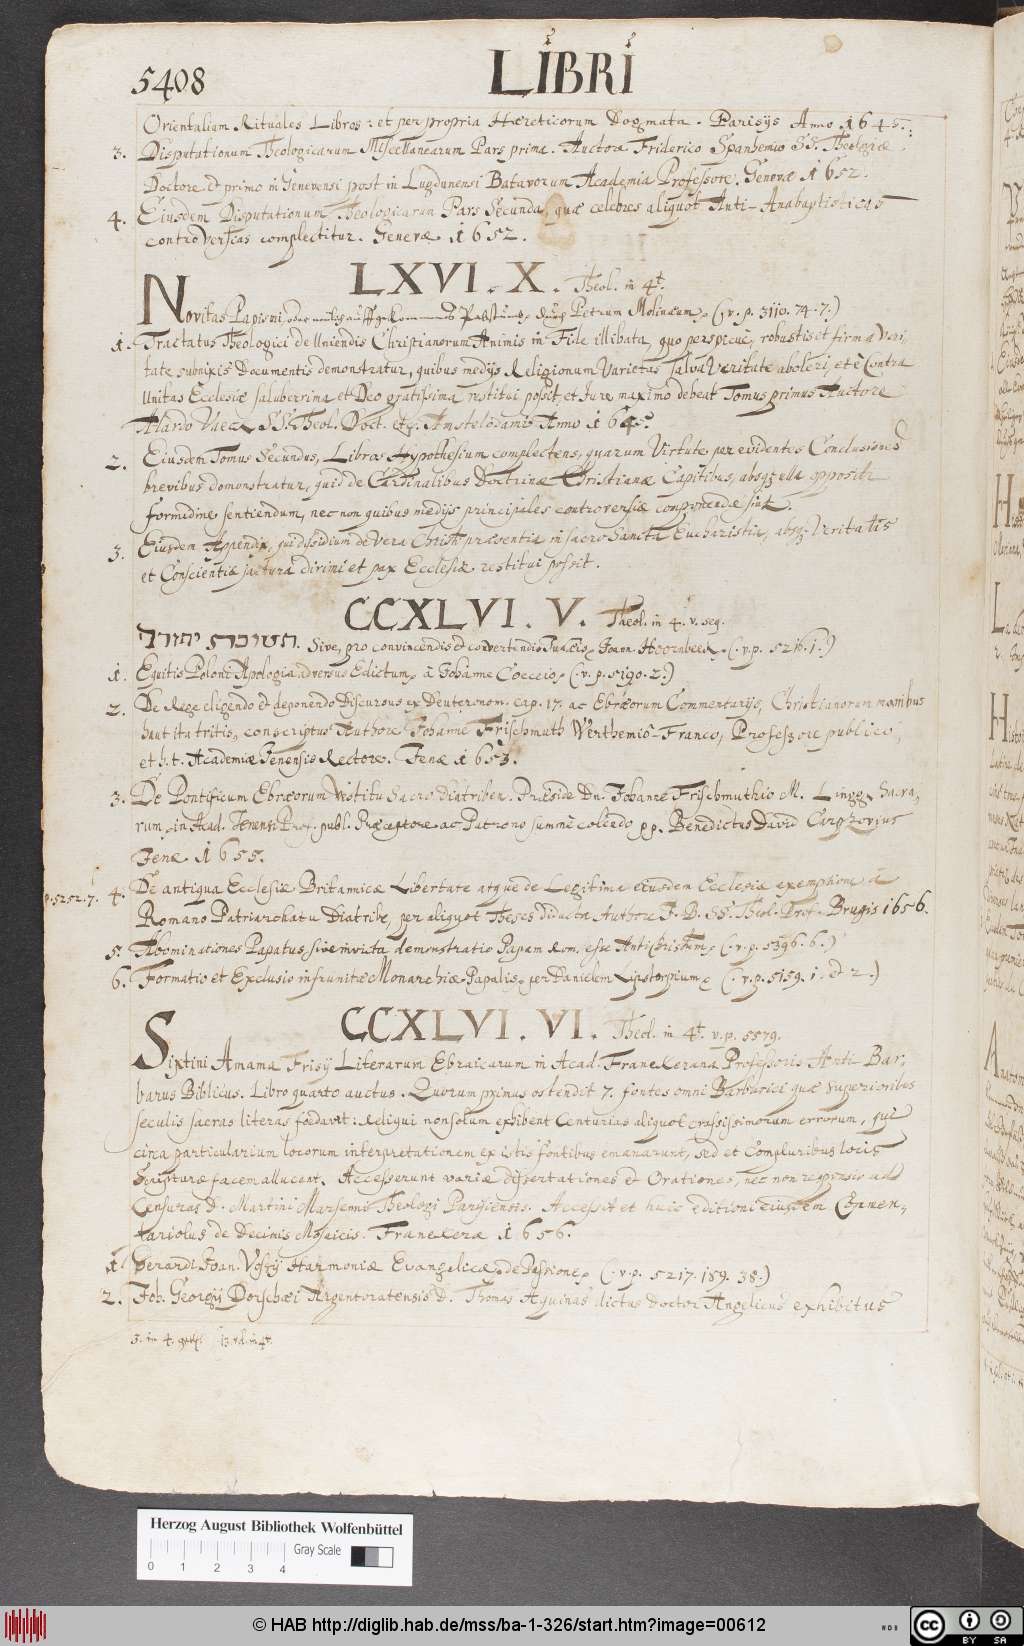 5408
LIBRI
Orientalium Rituales Libros: et per propria Hæreticorum Dogmata. Parisijs Anno 1645.
3. Disputationum Theologicarum Miscellanearum Pars prima. Auctore Friderico Spanhemio SS. Theologiæ
Doctore et primo in Genevensi post in Lugdunensi Batavorum Academia Professore. Genevæ 1652.
4. Eiusdem Disputationum Theologicarum Pars Secunda, quæ celebres aliquot Anti-Anabaptisticas
controversias complectitur. Genevæ 1652.
LXVI. X. Theol. in 4t.
Novitas Papismi, oder Petrum Molinæum, (v. p. 3110. 74. 7.)
1. Tractatus Theologici de Uniendis Christianorum Animis in Fide illibata, quo perspicuè, robustis et firma Veri,
tate subnixis Documentis demonstratur, quibus medijs Religionum Varietas salvâ Veritate aboleri, et è Contra
Unitas Ecclesiæ saluberrima et Deo gratissima restitui possit, et Iure maximo debeat Tomus primus Auctore
Alardo Vaeck SS. Theol. Doct. etc. Amstelodamis Anno 1645.
2. Eiusdem Tomus Secundus, Libros Hypothesium complectens, quarum Virtute per evidentes Conclusiones
brevibus demonstratur, quid de Cardinalibus Doctrinæ Christianæ Capitibus, absqz ella oppositi
formidine sentiendum, nec non quibus medijs principales controversiæ componendæ sint.
3. Eiusdem Appendix, qua dissidium de vera Christi præsentia in sacro Sancta Eucharistia, absqz Veritatis
et Conscientiæ jactura dirimi et pax Ecclesiæ restitui possit.
CCXLVI. V. Theol. in 4. v. seq.
תשובת יהודה. Sive, pro convincendis et convertendis Judæis, Joan. Hoornbeek, (. v. p. 5216. 1.)
1. Equitis Poloni Apologia adversus Edictum, à Johanne Cocceio, (. v. p. 5190. 2.)
2. De Rege eligendo et deponendo Discursus ex Deuteronom. cap. 17. ac Ebræorum Commentarijs, Christianorum manibus
haut ita tritis, conscriptus Authore Johanne Frischmuth Werthemio-Franco, Professore publico,
et h. t. Academiæ Jenensis Rectore. Jenæ 1653.
3. De Pontificum Ebræorum Vestitu Sacro diatriben. Præside Dn. Johanne Frischmuthio M. Lingg. Sacra,
rum, in Acad. Jenensi Prof. publ. Præceptore ac Patrono summè colendo pp. Benedictus David Carpzovius
Jenæ 1655.
p. 5252. 7. 4. De antiqua Ecclesiæ Britannicæ Libertate atque de Legitima eiusdem Ecclesiæ exemptione à
Romano Patriarchatu Diatribe, per aliquot Theses diducta Authore J. B. SS. Theol. Prof. Brugis 1656.
5. Abominationes Papatus, sive invicta demonstratio Papam Rom. esse Antichristum, (. v. p. 5396. 6.)
6. Formatio et Exclusio infrunitæ Monarchiæ Papalis, per Danielem Lipstorpium, (. v. p. 5159. 1. et 2.)
CCXLVI. VI. Theol. in 4t. v. p. 5579.
Sixtini Amama Frisij Literarum Ebraicarum in Acad. Franekerana Professoris Anti-Bar,
barus Biblicus. Libro quarto auctus. Quorum primus ostendit 7. fontes omnis Barbariei quæ superioribus
seculis sacras literas fœdavit: Reliqui non solum exhibent Centurias aliquot crassissimorum errorum, qui
circa particularium locorum interpretationem ex istis fontibus emanarunt, sed et Compluribus locis
Scripturæ facem allucent. Accesserunt variæ dissertationes et Orationes, nec non responsio ad
Censuras D. Martini Marsenni Theologi Parisiensis. Accessit et huic editioni eiusdem Commen,
tariolus de Decimis Mosaicis. Franekeræ 1656.
1. Gerardi Joan. Vossij Harmoniæ Evangelicæ, de Passione, (. v. p. 5217. 189. 38.)
2. Joh. Georgij Dorschæi Argentoratensis D. Thomas Aquinas dictus Doctor Angelicus exhibitus
3. in 4.
Herzog August Bibliothek Wolfenbüttel
Gray Scale
0 1 2 3 4
© HAB http://diglib.hab.de/mss/ba-1-326/start.htm?image=00612
cc BY SA